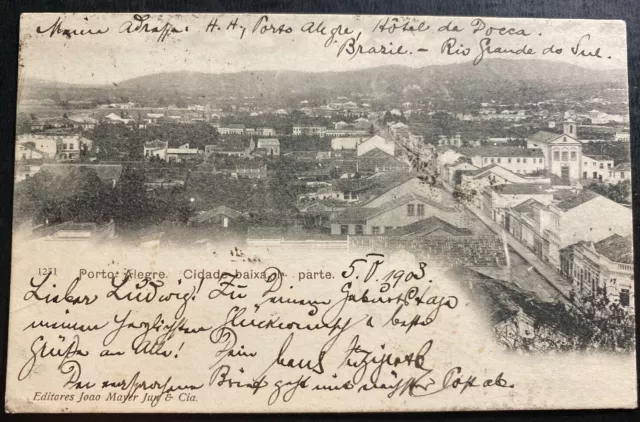 Meine Adresse: H. H., Porto Alegre, Hôtel da Docca.
Brazil. - Rio Grande do Sul.
1251 Porto Alegre. Cidade baixa, parte. 5. V. 1903
Lieber Ludwig! Zu Deinem Geburtstage
meinen herzlichsten Glückwunsch & beste
Grüße an Alle! Dein Hans
Der versprochene Brief geht mit nächster Post ab.
Editores Joao Mayer Jun & Cia.